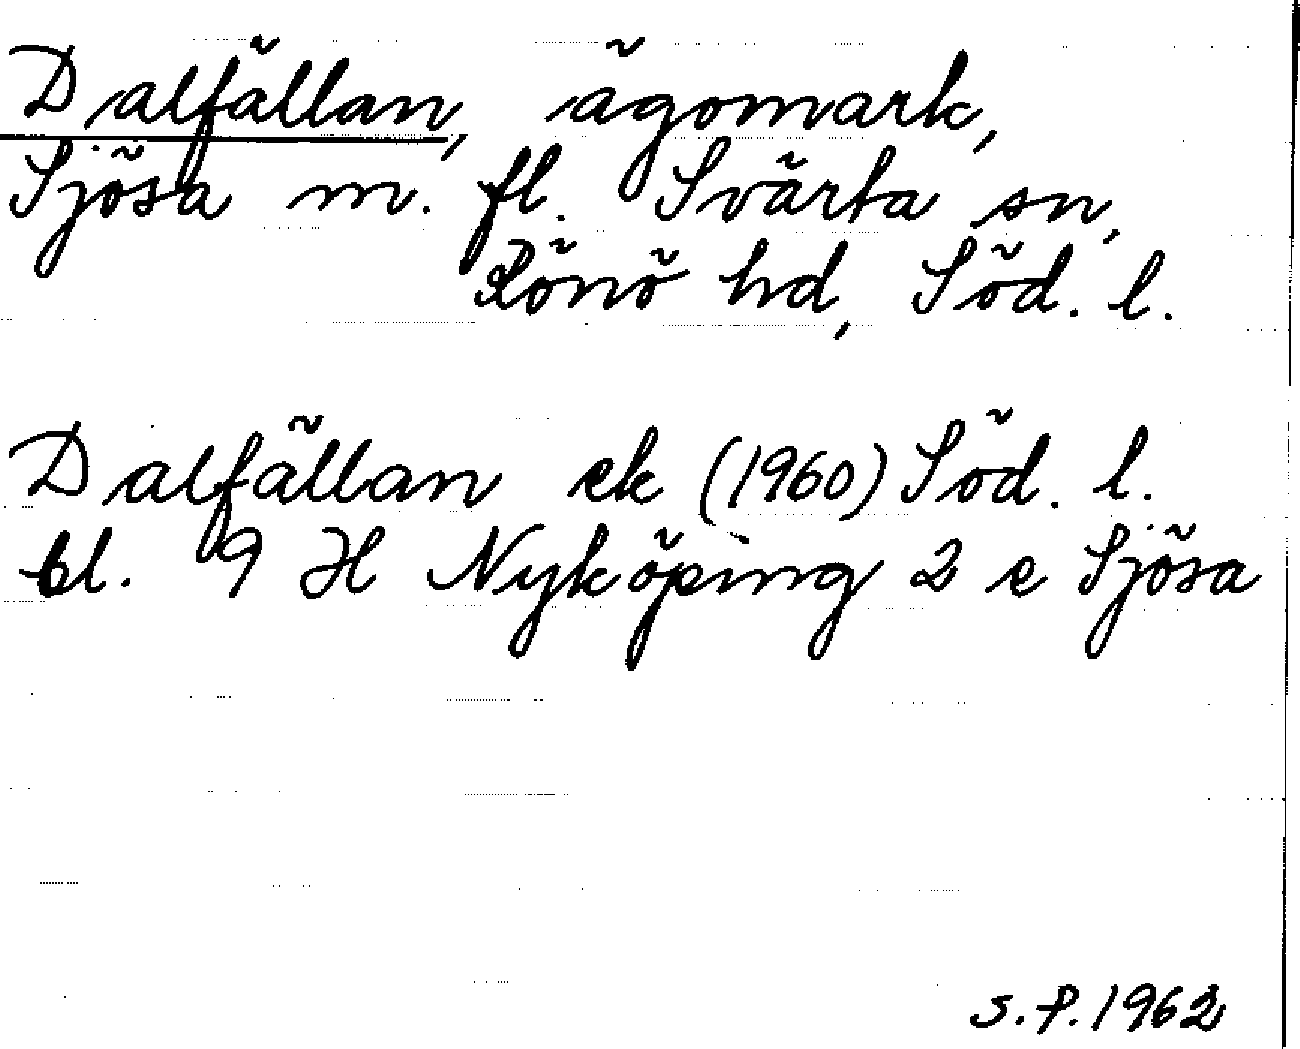 Dalfällan, ägomark,
Sjösa m. fl. Svärta sn,
Rönö hd, Söd. l.
Dalfällan ek (1960) Söd. l.
bl. 9 H Nyköping 2 e Sjösa
S.F. 1962